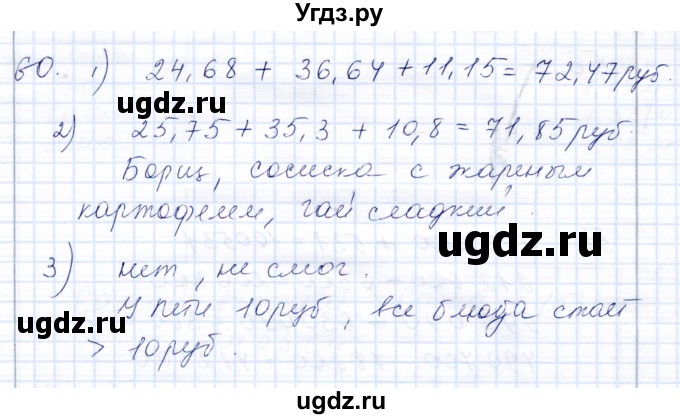 Угдз.ру
60. 1) 24,68 + 36,64 + 11,15 = 72,47 руб.
ugdz.ru
2) 25,75 + 35,3 + 10,8 = 71,85 руб.
Борщ, сосиска с жареным
картофелем, чай сладкий.
ugdz.ru
3) нет, не смог.
У Пети 10 руб, все блюда стоят
ugdz.ru
> 10 руб.
ugdz.ru
Угдз.ру